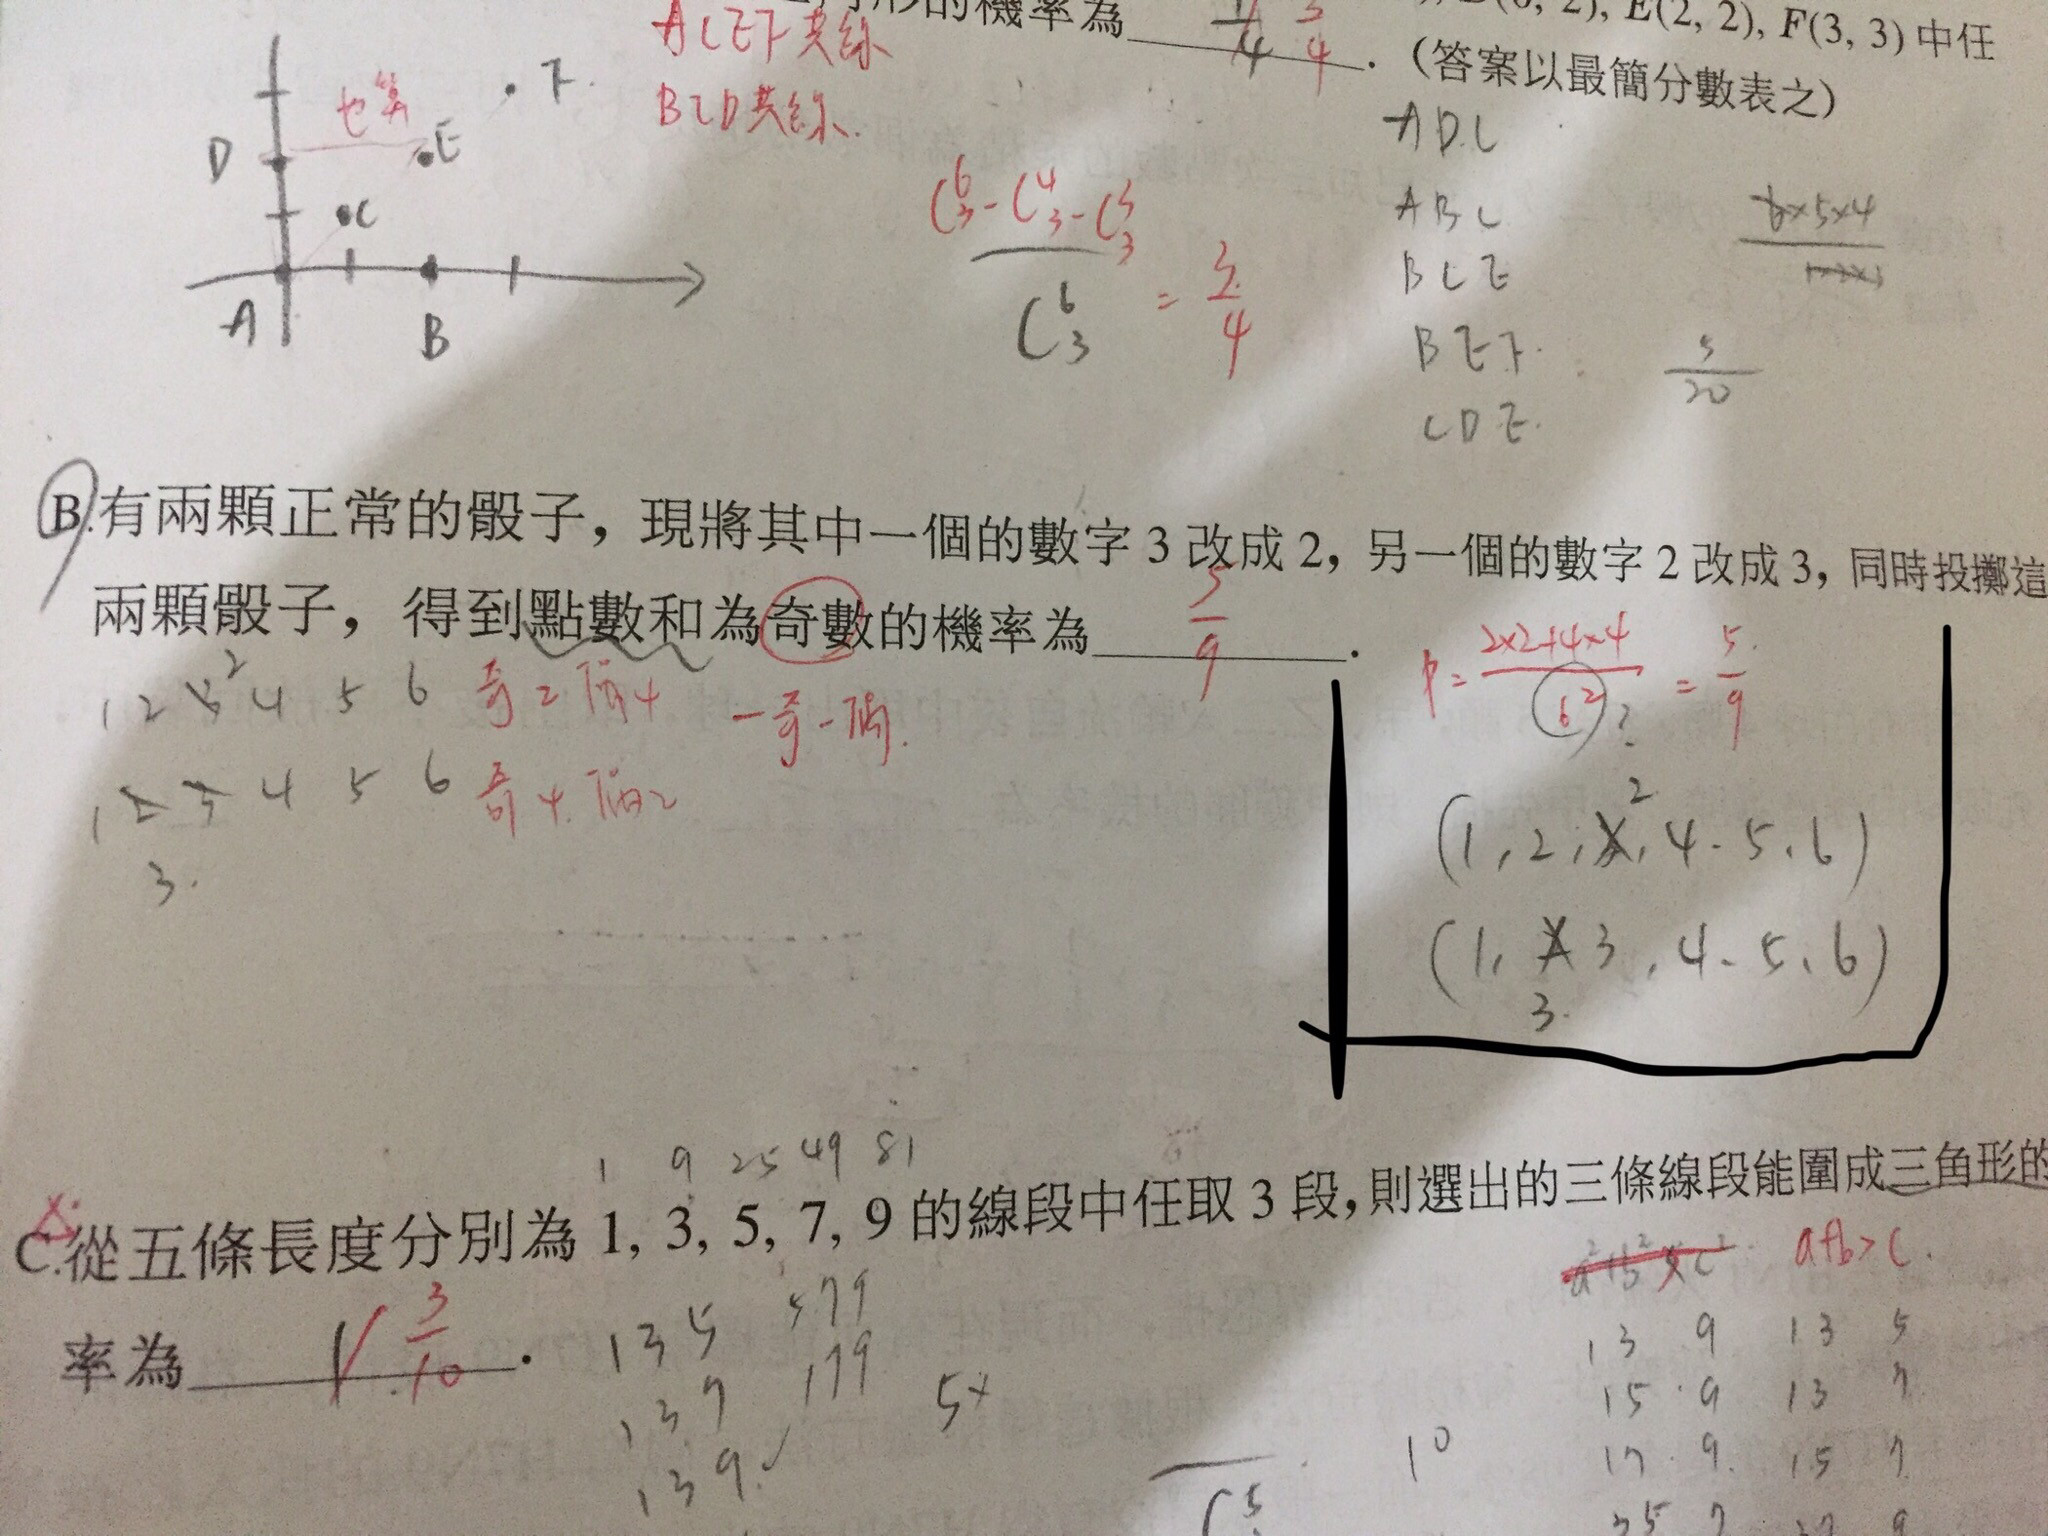 形的機率為
3/4
(6, 2), E(2, 2), F(3, 3) 中任
.(答案以最簡分數表之)
ACEF共線
BCD共線.
也算
F.
D
E
C
A
B
C^6_3 - C^4_3 - C^3_3
C^6_3
= 3/4
ADC
ABC
BCE
BEF.
CDE.
6×5×4
5/20
B.有兩顆正常的骰子，現將其中一個的數字 3 改成 2，另一個的數字 2 改成 3，同時投擲這
兩顆骰子，得到點數和為奇數的機率為 5/9 .
1 2 3 2 4 5 6 奇2偶4
一奇一偶.
1 2 3 4 5 6 奇4.偶2
3.
P = (2×2+4×4)/6² = 5/9
?
2
(1, 2, 3, 4. 5. 6)
(1, 2 3, 4. 5. 6)
3.
1 9 25 49 81
C.從五條長度分別為 1, 3, 5, 7, 9 的線段中任取 3 段，則選出的三條線段能圍成三角形的
率為 3/10 .
a+b>c.
135 579
137 179
139. ✓
5×
10
13 9 13 5
15 9 13 7
17 9. 15 7
35 7
C^5